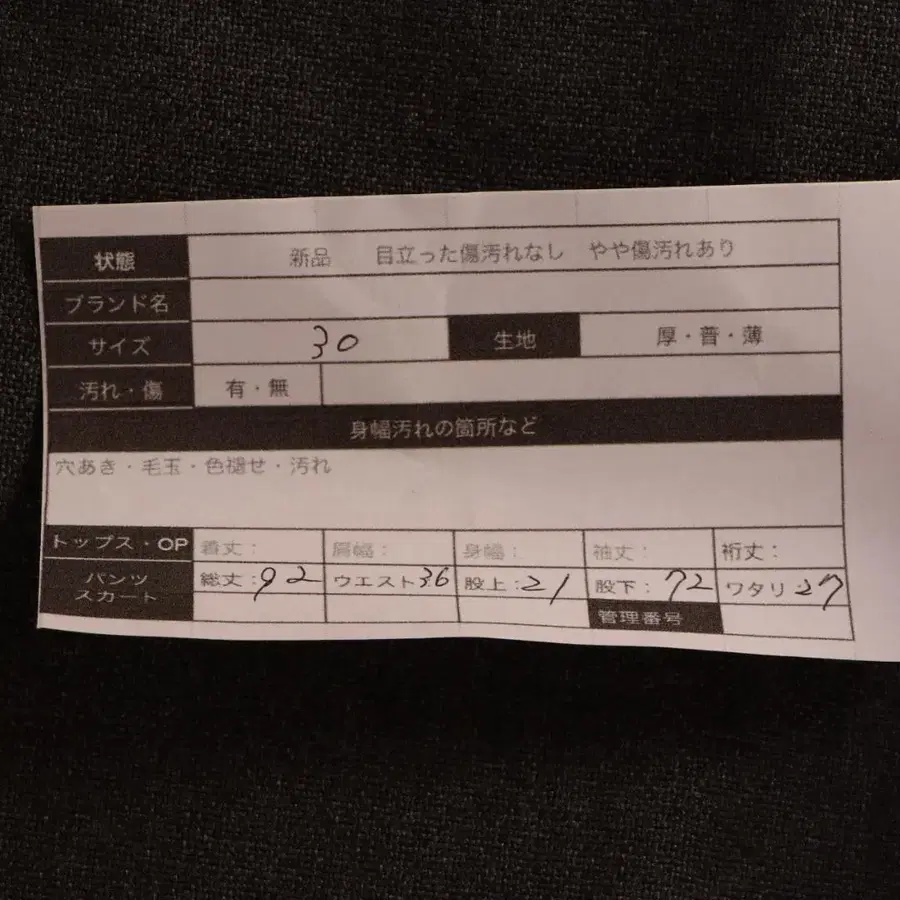 状態 新品 目立った傷汚れなし やや傷汚れあり
ブランド名
サイズ 30 生地 厚・普・薄
汚れ・傷 有・無
身幅汚れの箇所など
穴あき・毛玉・色褪せ・汚れ
トップス・OP 着丈: 肩幅: 身幅: 袖丈: 裄丈:
パンツ 総丈:92 ウエスト36 股上:21 股下:72 ワタリ:27
スカート 管理番号